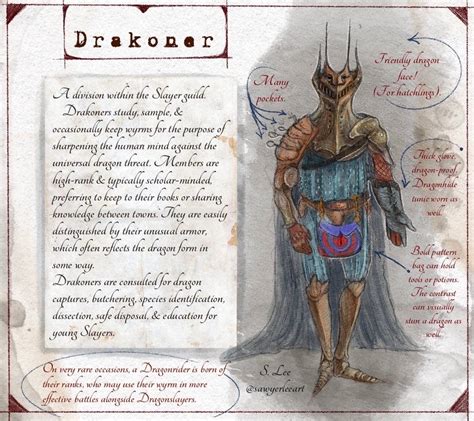 Drakoner
A division within the Slayer guild.
Drakoners study, sample, &
occasionally keep wyrms for the purpose of
sharpening the human mind against the
universal dragon threat. Members are
high-rank & typically scholar-minded,
preferring to keep to their books or sharing
knowledge between towns. They are easily
distinguished by their unusual armor,
which often reflects the dragon form in
some way.
Drakoners are consulted for dragon
captures, butchering, species identification,
dissection, safe disposal, & education for
young Slayers.
On very rare occasions, a Dragonrider is born of
their ranks, who may use their wyrm in more
effective battles alongside Dragonslayers.
Many
pockets.
Friendly dragon
face!
(For hatchlings).
Thick gieve
dragon-proof
Dragonhide
tunic worn as
well.
Bold pattern
bag can hold
tools or potions.
The contrast
can visually
stun a dragon as
well.
S. Lee
@sawyerleeart